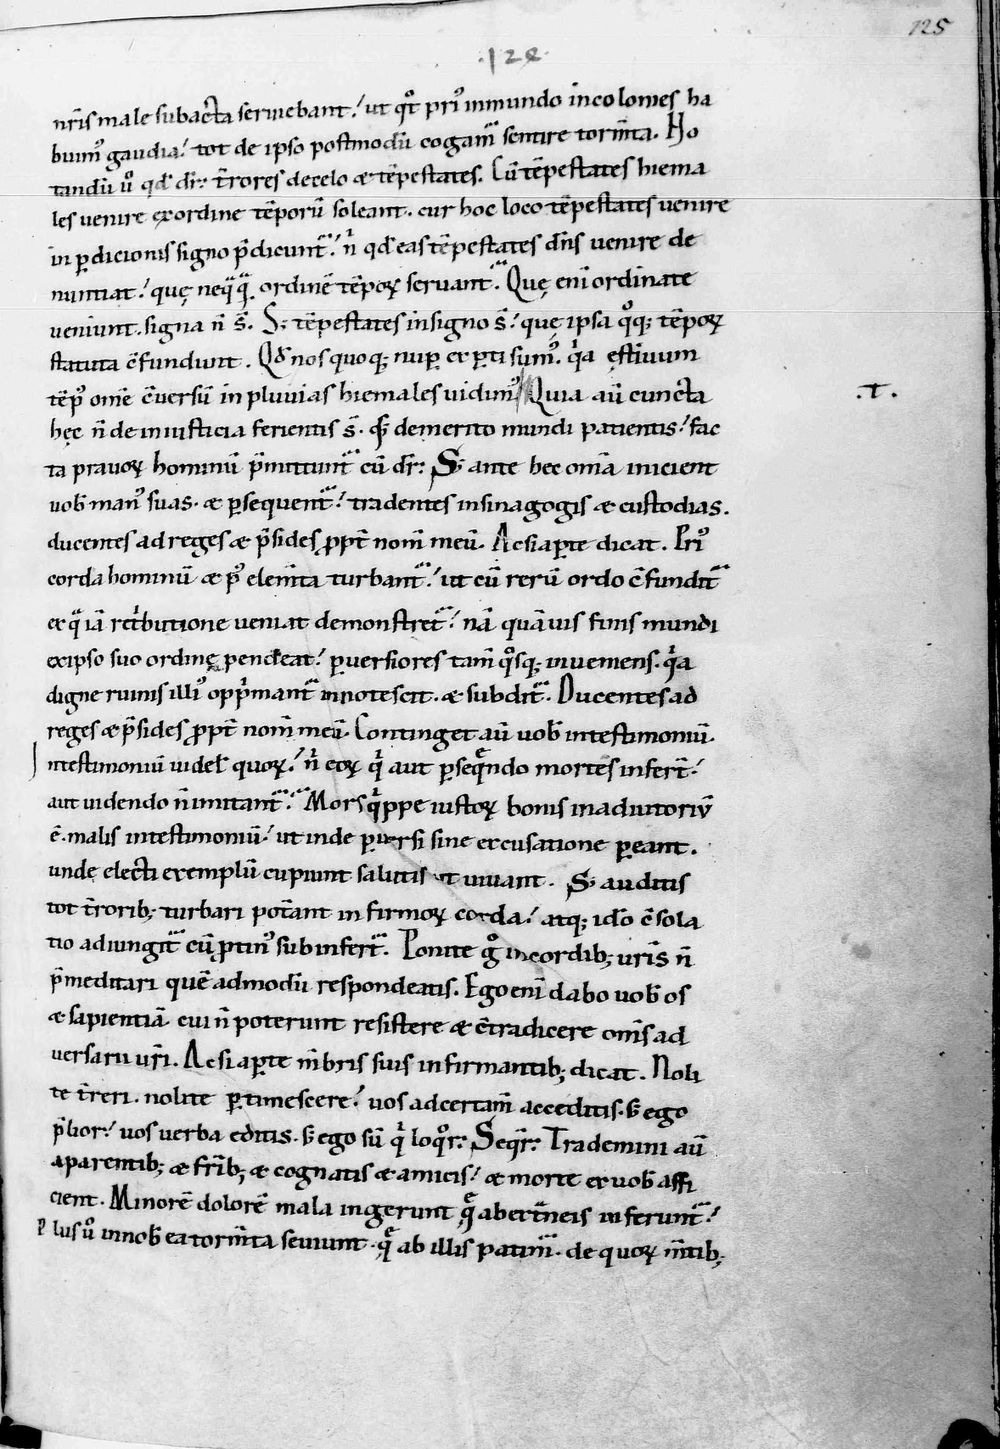 125
·124·
nr̄is male subacta seruiebant! ut qͦt priꝰ inmundo incolomes ha
buimꝰ gaudia! tot de ipso postmodū cogam̃ sentire torm̄ta. No
tandū uͦ qd̓ dr̄: t̄rores decelo æ tēpestates. Cū tēpestates hiema
les venire exordine tēporū soleant. cur hoc loco tēpestates venire
in ꝑdicionis signo p̄dicunt̃! n̓ qd̓ eas tēpestates dn̄s venire de
nuntiat! quę neq̄q̄ ordinē tēporꝝ seruant̃. Quę eni ordinate
veniunt. signa n̄ s̄. S; tēpestates insigno s̄! quę ipsa qͦq; tēporꝝ
statuta c̄fundunt. Qd̓ nos quoq; nuꝑ exꝑti sumꝰ. qͥa ęstiuum
tēpꝰ omē c̄uersū in pluuias hiemales uidimꝰ Quia aū cuncta
hęc n̄ de iniusticia ferientis s̄. s; demerito mundi patientis! fac
ta prauorꝝ hominū p̄mittunt̃ cū dr̄: S; ante hec om̄a inicient
uob̄ manꝰ suas. æ ꝑsequent̃! tradentes insinagogis æ custodias.
ducentes ad reges æ p̄sides ꝓpt̄ nom̄ meū. Acsi aꝑte dicat. Priꝰ
corda hominū æ pꝰ elem̄ta turbant̃! ut cū rerū ordo c̄fundit̃
ex q̄ iā retͥbutione veniat demonstret̃! nā quāuis finis mundi
exipso suo ordinę pendeat! ꝑuersiores tam̄ qͦsq; inueniens. qͥa
digne ruinis illiꝰ opp̄mant̃ innotescit. æ subdit̃. Ducentes ad
reges æ p̄sides ꝓpt̄ nom̄ meū. Continget aū uob̄ intestimoniū.
Intestimoniū uidel̓ quorꝝ! n̓ eorꝝ qͥ aut ꝑseq̄ndo mortēs infert̄!
aut uidendo n̄ imitant̃. Mors qͥppe iustorꝝ bonis inadiutoriū
ē. malis intestimoniū! ut inde ꝑuersi sine excusatione ꝑeant.
unde electi exemplū cupiunt salutis ut uiuant. S; auditis
tot t̄rorib; turbari poťant infirmorꝝ corda! atq; id̓o c̄sola
tio adiungit̃ cū ꝓtinꝰ subinfert̃. Ponite gͦ incordib; uris̄ n̄
p̄meditari quē admodū respondeatis. Ego eni dabo uob̄ os
æ sapientiā. cui n̄ poterunt resistere æ c̄tradicere om̄s ad
uersarii uri̅. Acsi aꝑte m̄bris suis infirmantib; dicat. Noli
te t̄reri. nolite ꝑtimescere! uos adcertam̄ acceditis. s; ego
p̄lior! uos uerba editis. s; ego sū qͥ loqͦr: Seqr̄: Trademini aū
aparentib; æ fr̄ib; æ cognatis æ amicis! æ morte ex uob̄ affi
cient. Minorē dolorē mala ingerunt q̄ abext̄neis inferunt̃!
Plus uͦ innob̄ ea torm̄ta seuiunt. q̄ ab illis patim̃. de quorꝝ m̄tib;
.T.